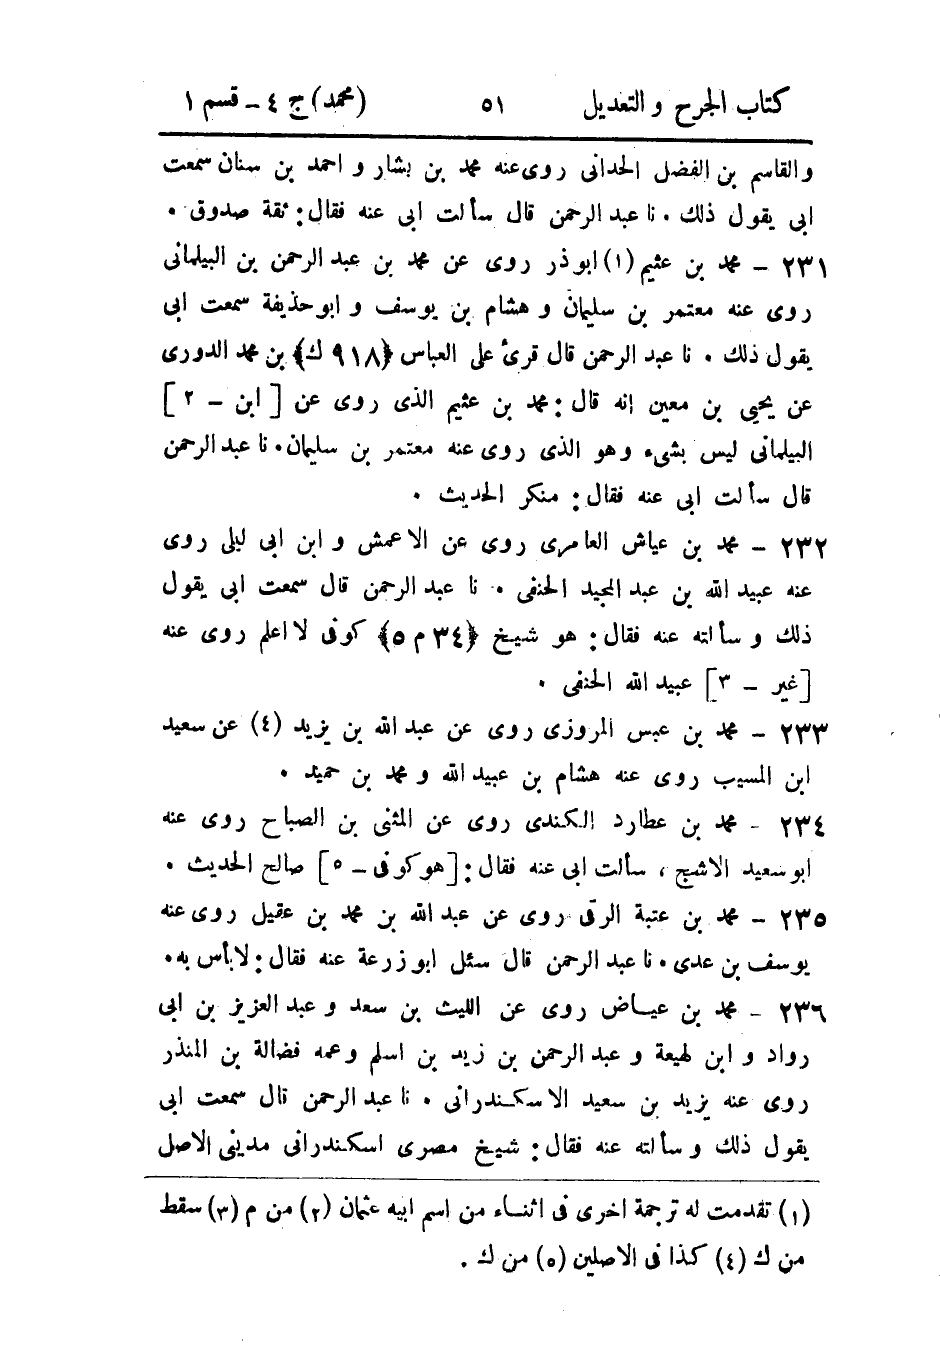 كتاب الجرح و التعديل ٥١ (محمد) ج ٤ - قسم ١
والقاسم بن الفضل الحدانى روى عنه محمد بن بشار و احمد بن سنان سمعت
ابى يقول ذلك . نا عبد الرحمن قال سألت ابى عنه فقال: ثقة صدوق .
٢٣١ - محمد بن عثيم (١) ابوذر روى عن محمد بن عبد الرحمن بن البيلمانى
روى عنه معتمر بن سليمان و هشام بن يوسف و ابو حذيفة سمعت ابى
يقول ذلك . نا عبد الرحمن قال قرئ على العباس ﴿٩١٨ ك﴾ بن محمد الدورى
عن يحيى بن معين إنه قال: محمد بن عثيم الذى روى عن [ابن - ٢]
البيلمانى ليس بشىء وهو الذى روى عنه معتمر بن سليمان. نا عبد الرحمن
قال سألت ابى عنه فقال: منكر الحديث .
٢٣٢ - محمد بن عياش العامرى روى عن الاعمش و ابن ابى ليلى روى
عنه عبيد الله بن عبد المجيد الحنفى . نا عبد الرحمن قال سمعت ابى يقول
ذلك و سألته عنه فقال: هو شيخ ﴿٣٤ م ٥﴾ كوفى لا اعلم روى عنه
[غير - ٣] عبيد الله الحنفى .
٢٣٣ - محمد بن عبس المروزى روى عن عبد الله بن يزيد (٤) عن سعيد
ابن المسيب روى عنه هشام بن عبيد الله و محمد بن حميد .
٢٣٤ - محمد بن عطارد الكندى روى عن المثنى بن الصباح روى عنه
ابو سعيد الاشج ، سألت ابى عنه فقال: [هو كوفى - ٥] صالح الحديث .
٢٣٥ - محمد بن عتبة الرقى روى عن عبد الله بن محمد بن عقيل روى عنه
يوسف بن عدى . نا عبد الرحمن قال سئل ابو زرعة عنه فقال: لا بأس به.
٢٣٦ - محمد بن عياض روى عن الليث بن سعد و عبد العزيز بن ابى
رواد و ابن لهيعة و عبد الرحمن بن زيد بن اسلم وعمه فضالة بن المنذر
روى عنه يزيد بن سعيد الاسكندرانى . نا عبد الرحمن قال سمعت ابى
يقول ذلك و سألته عنه فقال: شيخ مصرى اسكندرانى مدينى الاصل
(١) تقدمت له ترجمة اخرى فى اثناء من اسم ابيه عثمان (٢) من م (٣) سقط
من ك (٤) كذا فى الاصلين (٥) من ك .